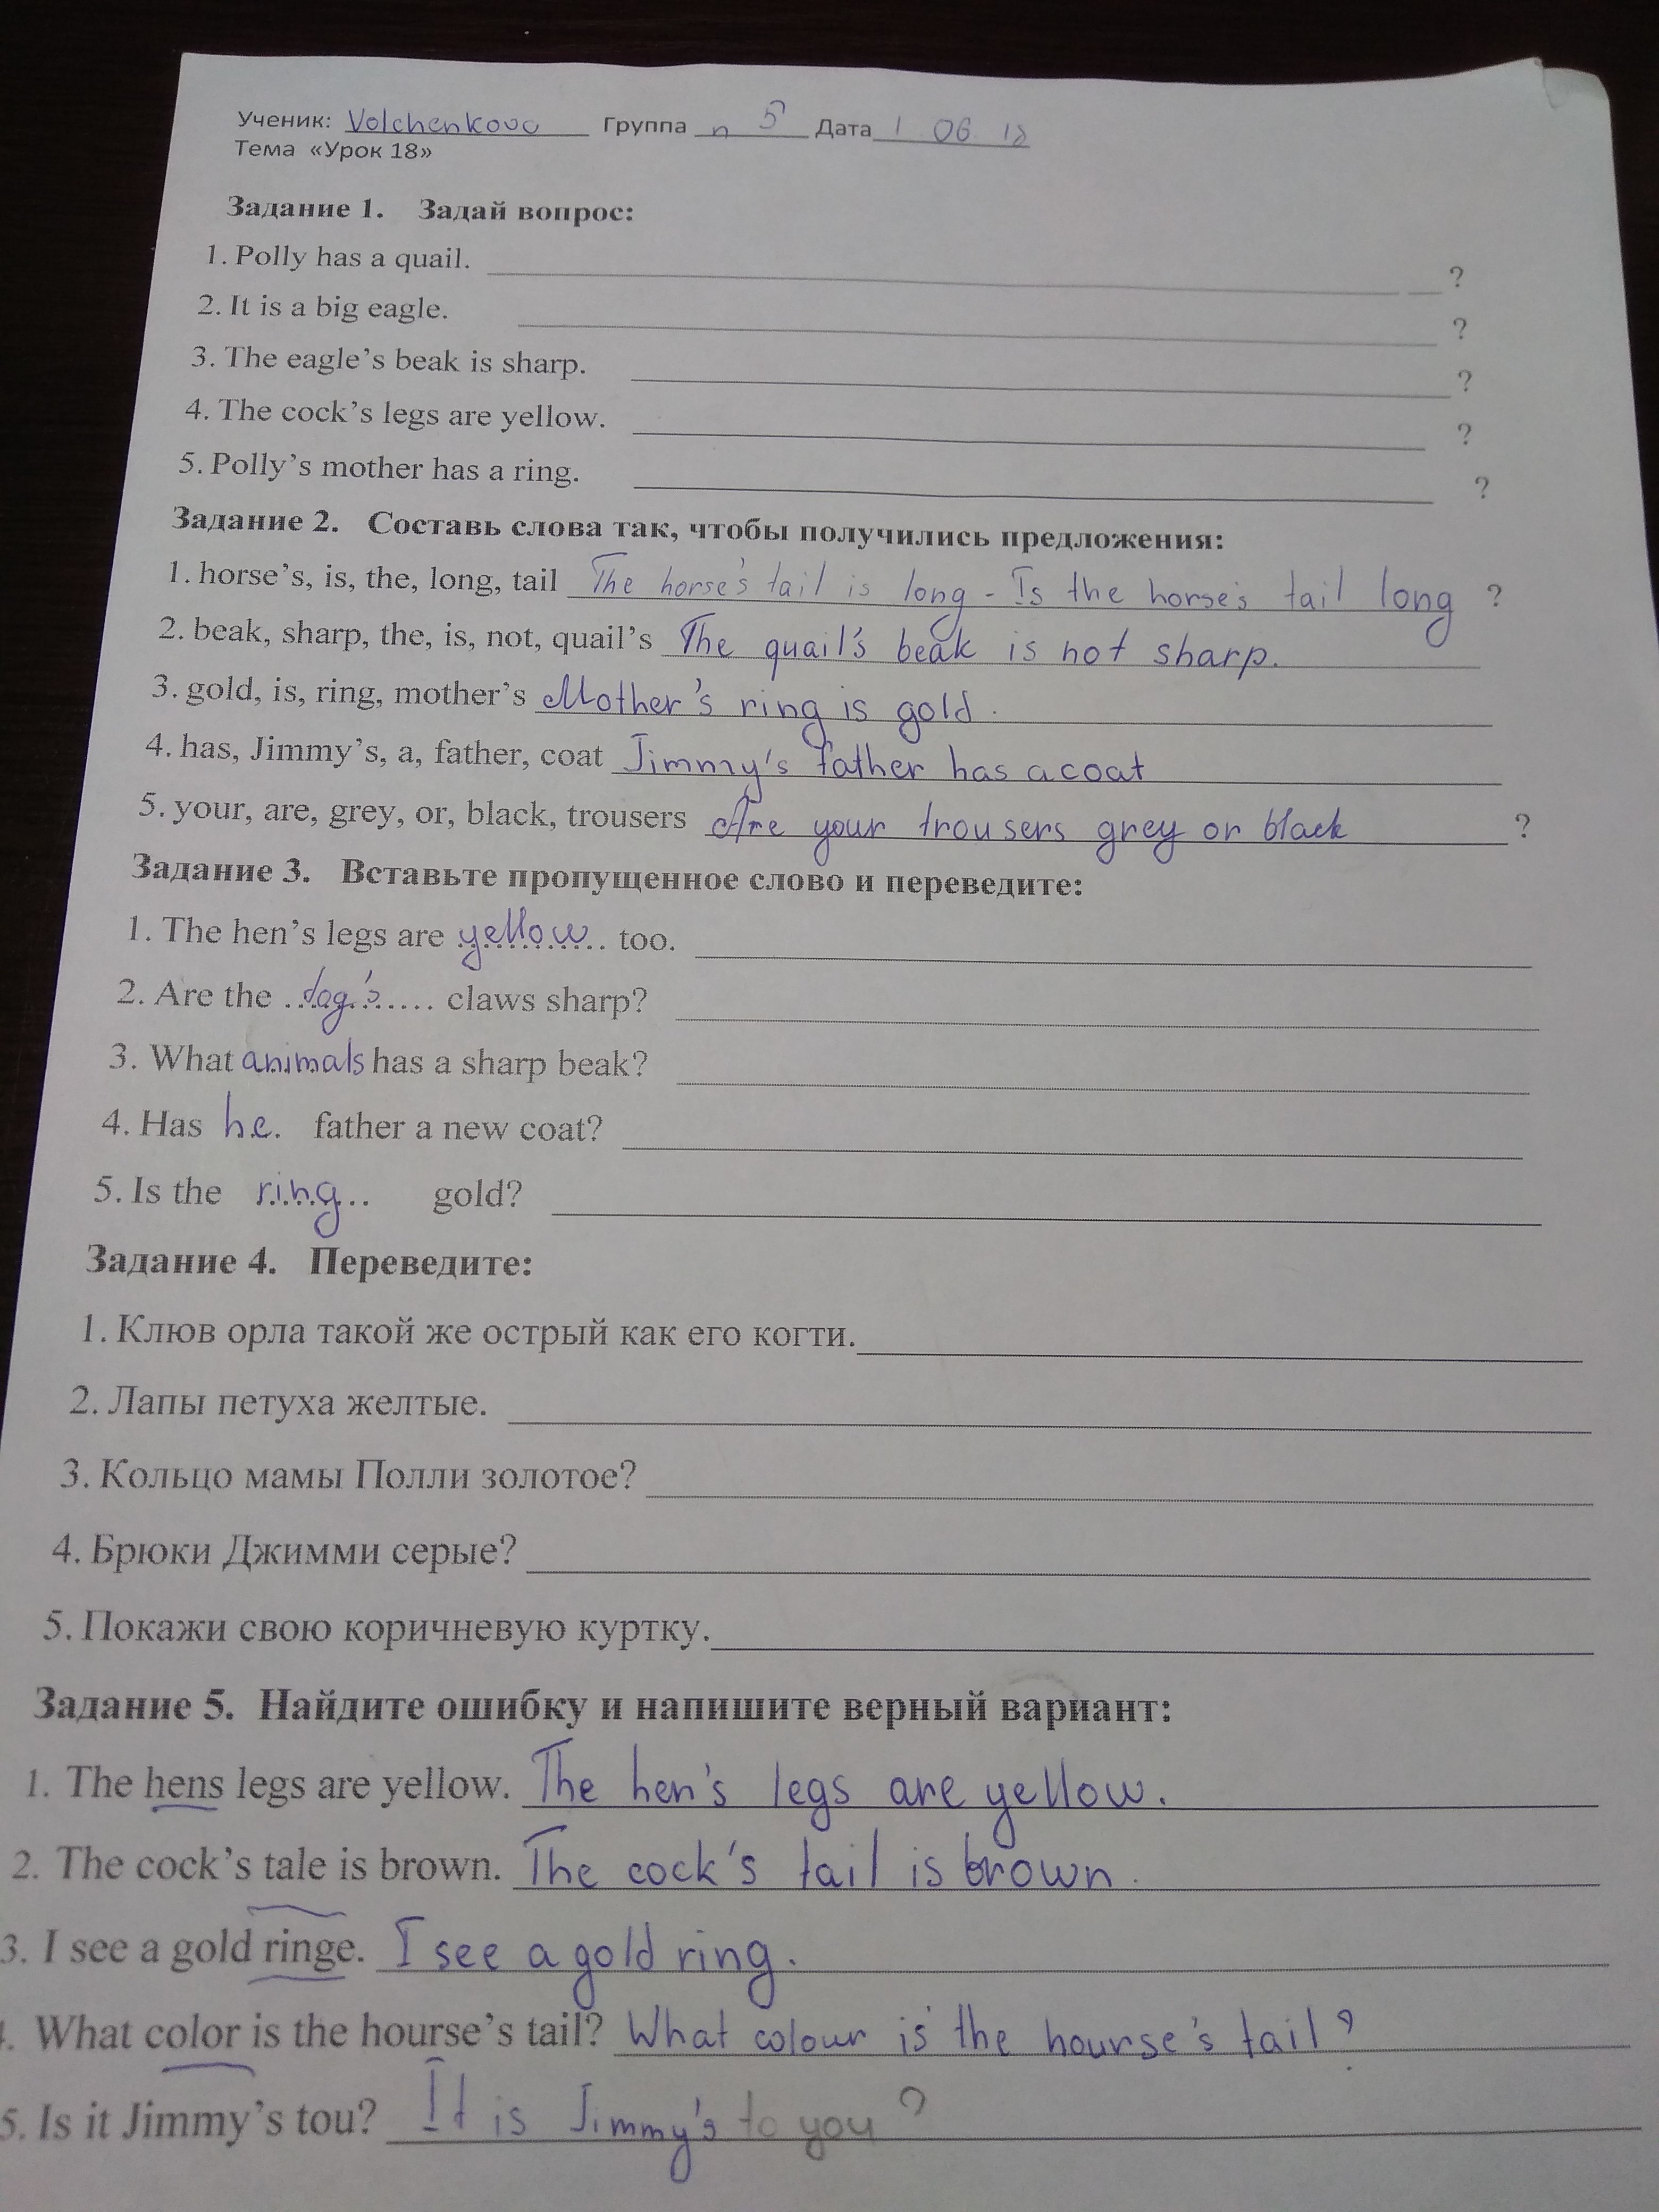 Ученик: Volchenkova Группа n 5 Дата 1 06 18
Тема «Урок 18»
Задание 1. Задай вопрос:
1. Polly has a quail. ?
2. It is a big eagle. ?
3. The eagle's beak is sharp. ?
4. The cock's legs are yellow. ?
5. Polly's mother has a ring. ?
Задание 2. Составь слова так, чтобы получились предложения:
1. horse's, is, the, long, tail The horse's tail is long - Is the horse's tail long ?
2. beak, sharp, the, is, not, quail's The quail's beak is not sharp.
3. gold, is, ring, mother's Mother's ring is gold.
4. has, Jimmy's, a, father, coat Jimmy's father has a coat
5. your, are, grey, or, black, trousers Are your trousers grey or black ?
Задание 3. Вставьте пропущенное слово и переведите:
1. The hen's legs are yellow too.
2. Are the dog's claws sharp?
3. What animals has a sharp beak?
4. Has he father a new coat?
5. Is the ring gold?
Задание 4. Переведите:
1. Клюв орла такой же острый как его когти.
2. Лапы петуха желтые.
3. Кольцо мамы Полли золотое?
4. Брюки Джимми серые?
5. Покажи свою коричневую куртку.
Задание 5. Найдите ошибку и напишите верный вариант:
1. The hens legs are yellow. The hen's legs are yellow.
2. The cock's tale is brown. The cock's tail is brown.
3. I see a gold ringe. I see a gold ring.
4. What color is the hourse's tail? What colour is the hourse's tail?
5. Is it Jimmy's tou? It is Jimmy's to you?